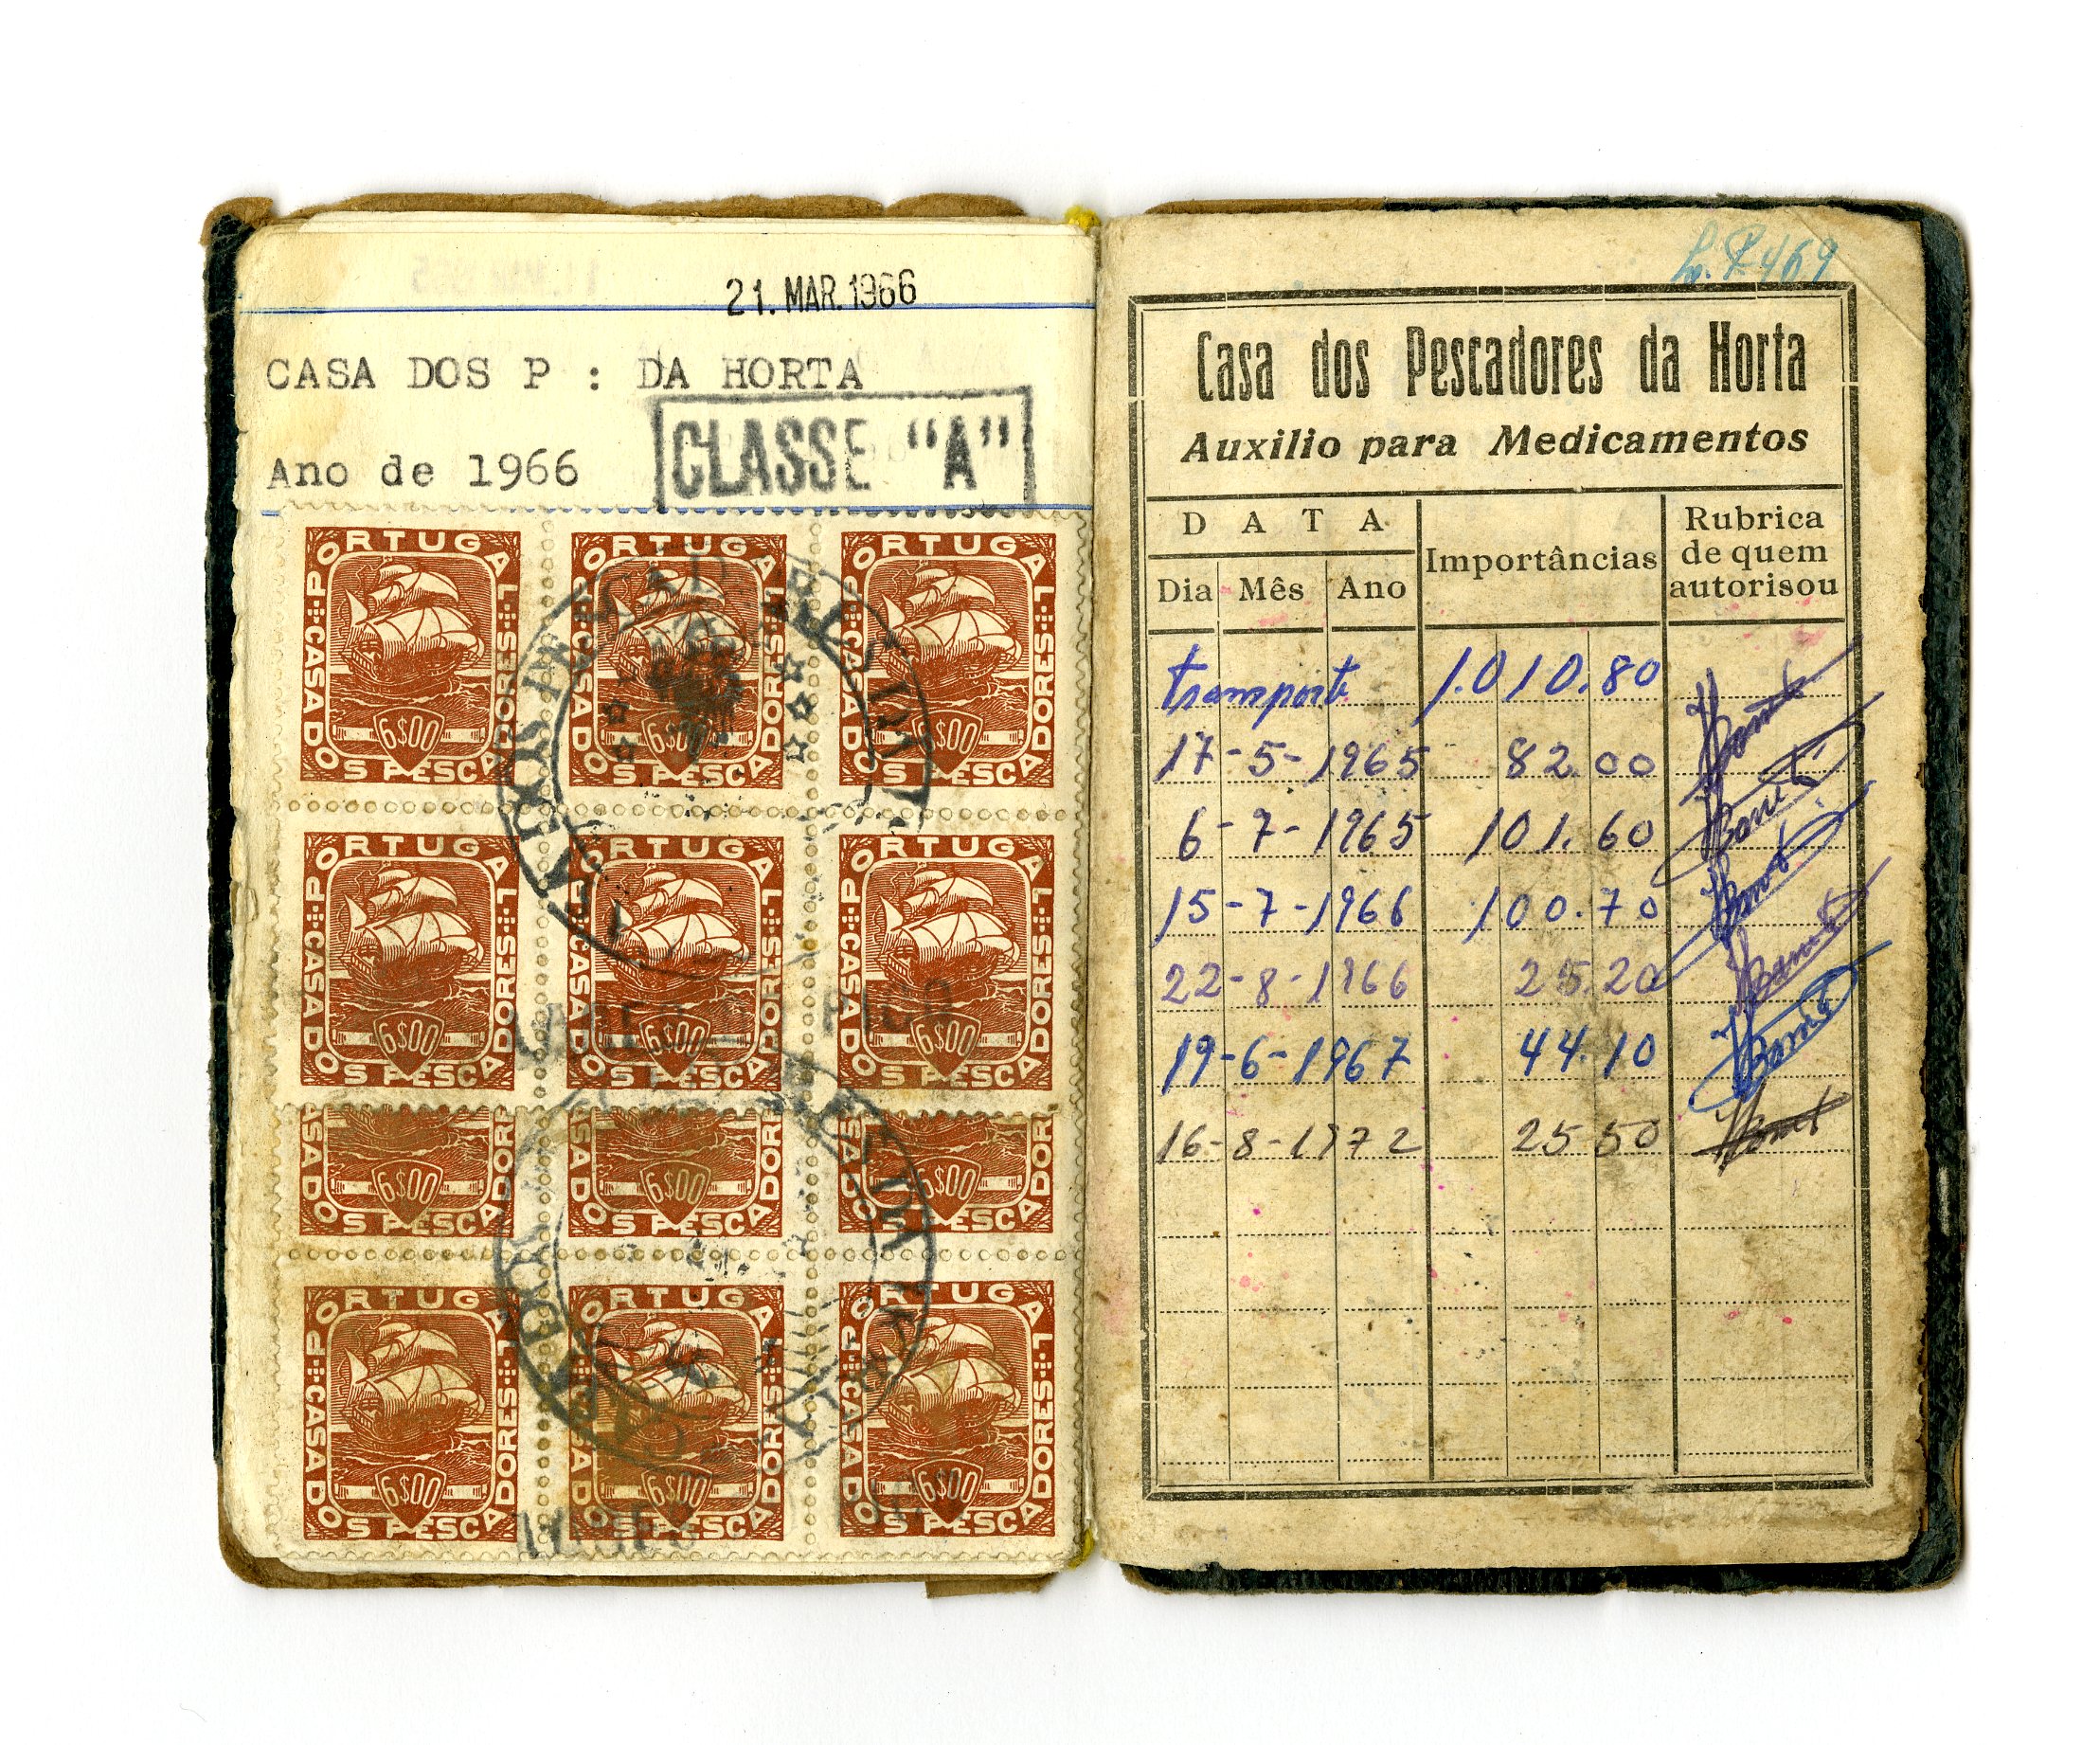 21. MAR. 1966
CASA DOS P : DA HORTA
CLASSE "A"
Ano de 1966
PORTUGAL CASA DOS PESCADORES 6$00
PORTUGAL CASA DOS PESCADORES 6$00
PORTUGAL CASA DOS PESCADORES 6$00
PORTUGAL CASA DOS PESCADORES 6$00
PORTUGAL CASA DOS PESCADORES 6$00
PORTUGAL CASA DOS PESCADORES 6$00
ASA DOS PESCADORE 6$00
ASA DOS PESCADORE 6$00
ASA DOS PESCADORE 6$00
PORTUGAL CASA DOS PESCADORES 6$00
PORTUGAL CASA DOS PESCADORES 6$00
PORTUGAL CASA DOS PESCADORES 6$00
Casa dos Pescadores da Horta
Auxilio para Medicamentos
DATA Importâncias Rubrica de quem autorisou
Dia Mês Ano
transporte 1.010.80
17-5-1965 82.00
6-7-1965 101.60
15-7-1966 100.70
22-8-1966 25.20
19-6-1967 44.10
16-8-1972 25 50